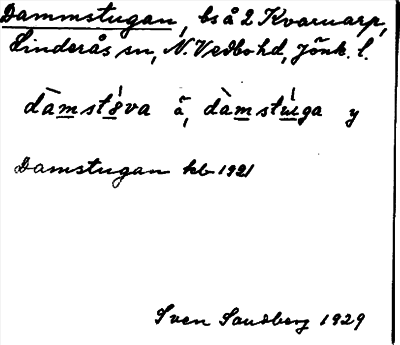 Dammstugan, bs å 2 Kvarnarp,
Linderås sn, N. Vedbo hd, Jönk. l.
dàmst8́va ä, dàmstɯ́ga y
Damstugan kb 1921
Sven Sandberg 1929